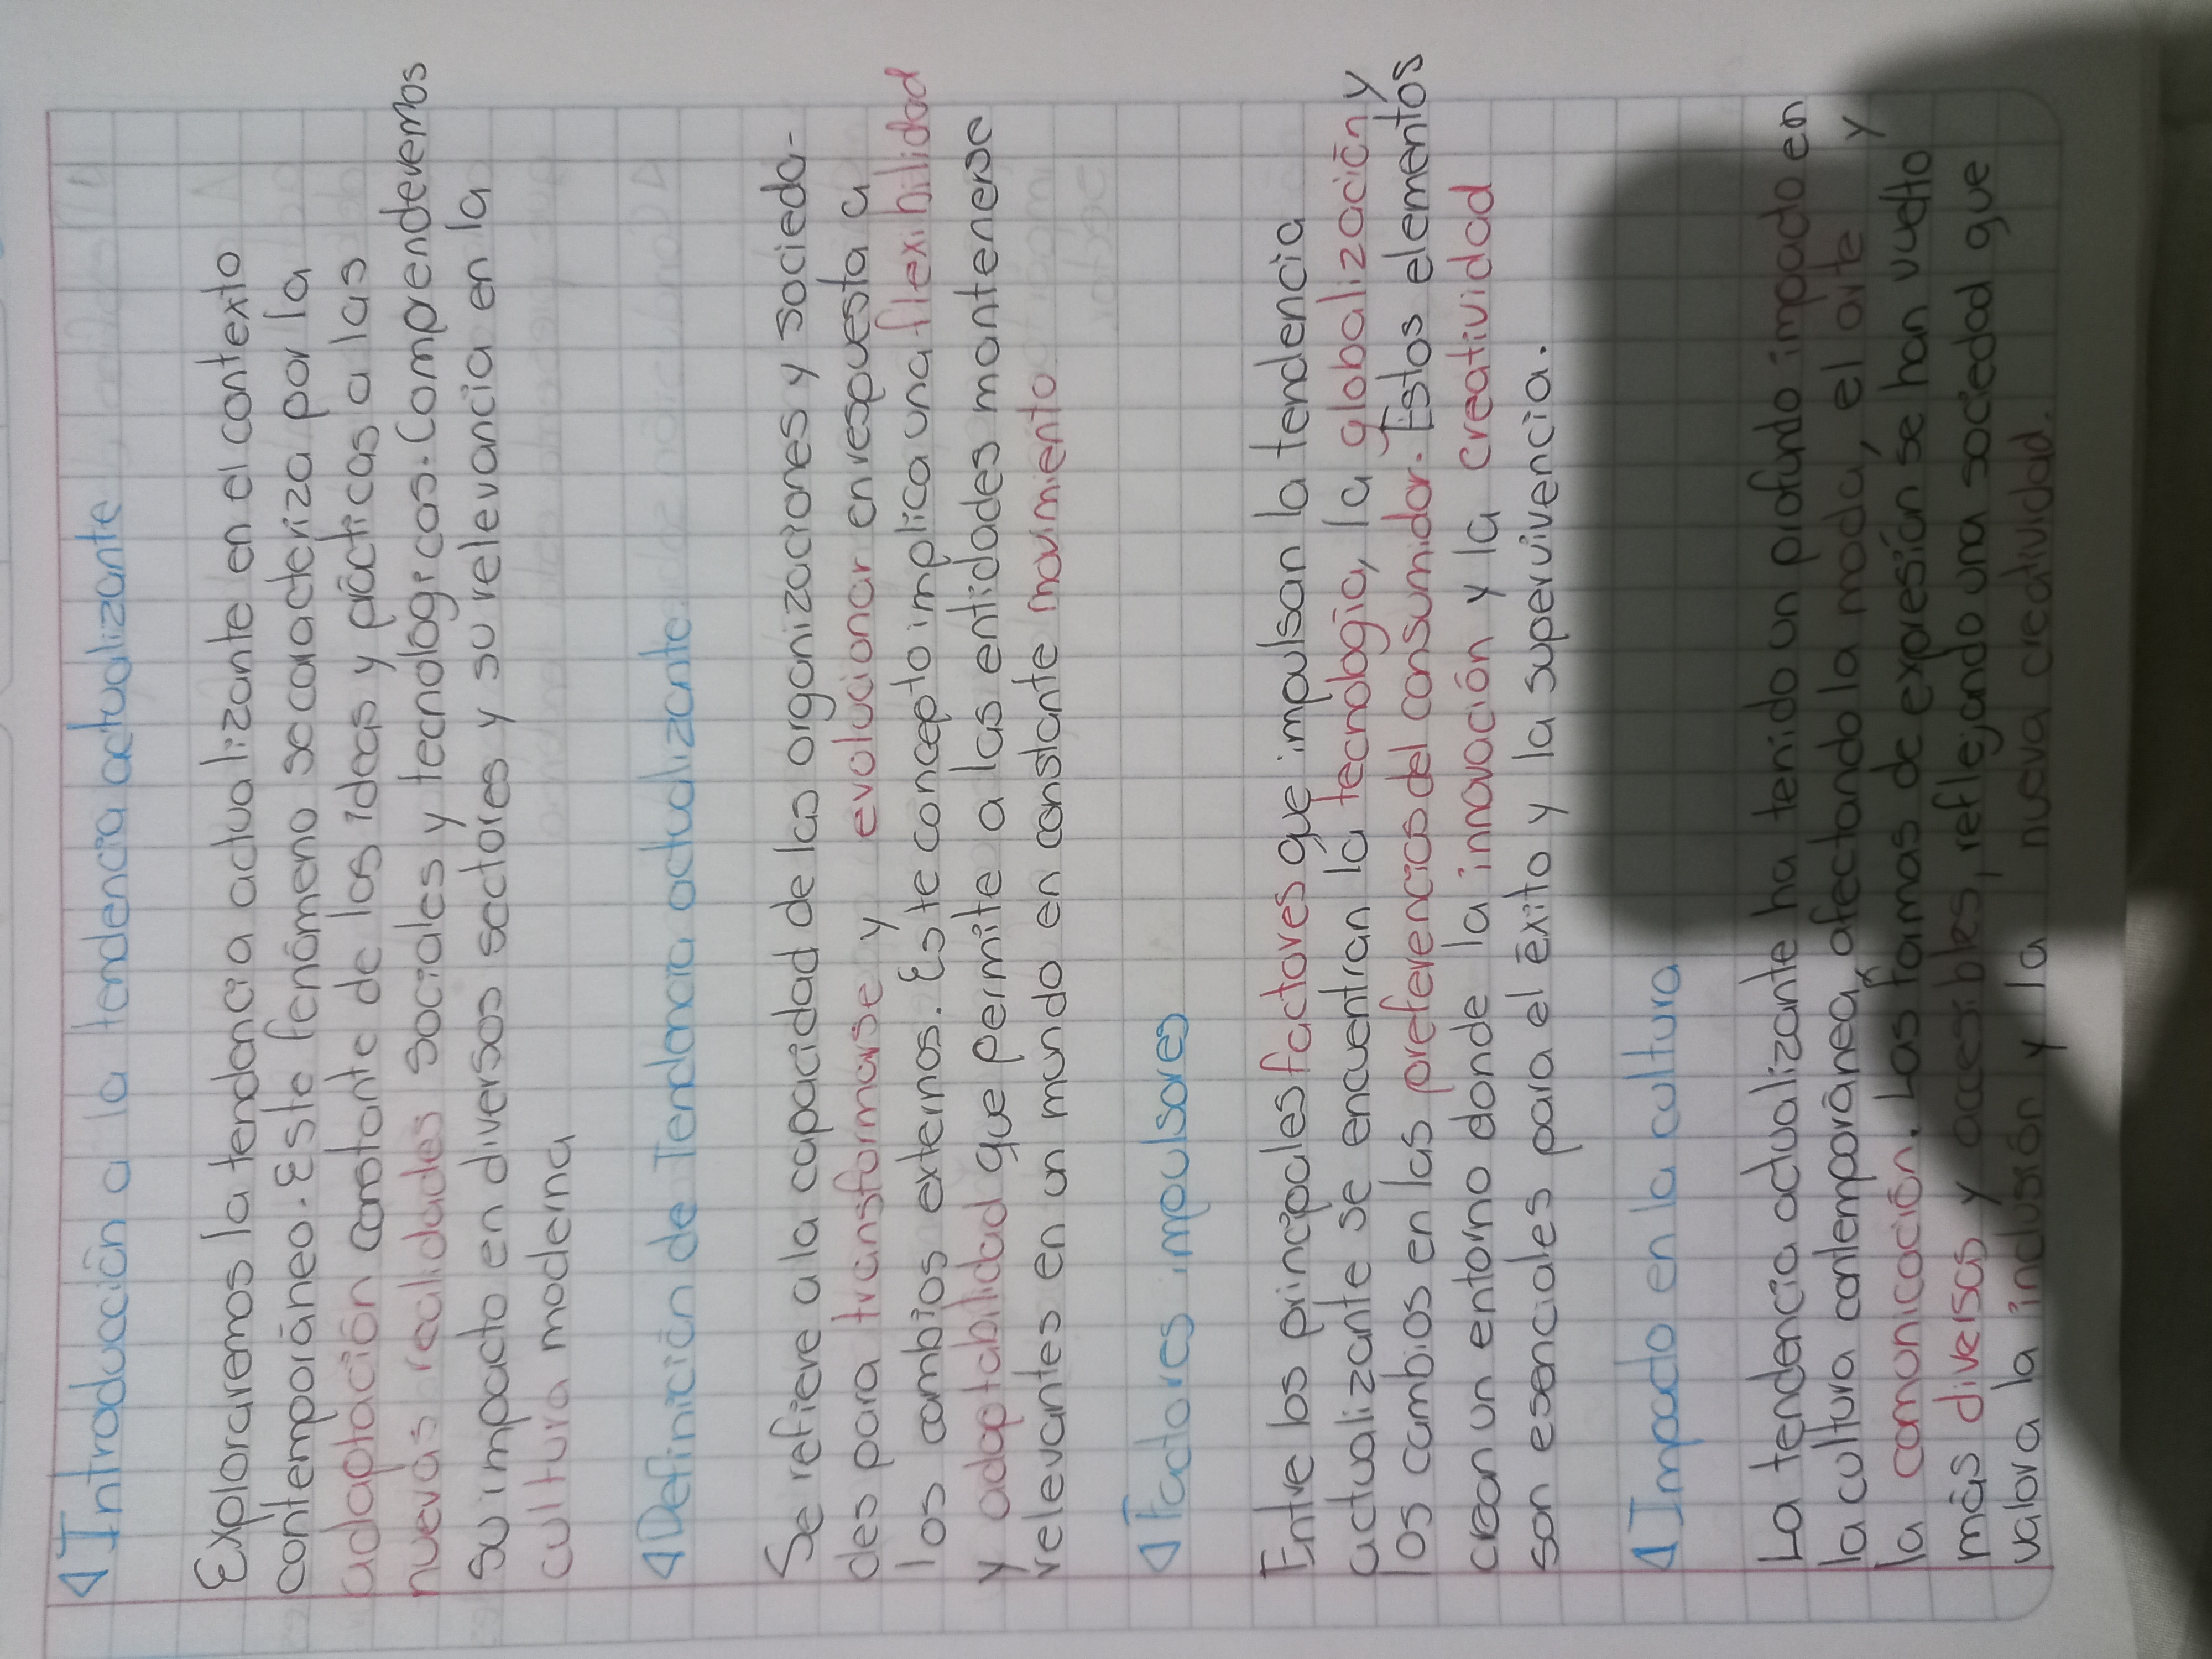 Introducción a la tendencia actualizante
Exploraremos la tendencia actualizante en el contexto
contemporáneo. Este fenómeno se caracteriza por la
adaptación constante de las ideas y prácticas a las
nuevas realidades sociales y tecnológicas. Comprenderemos
su impacto en diversos sectores y su relevancia en la
cultura moderna
Definición de Tendencia actualizante
Se refiere a la capacidad de las organizaciones y socieda-
des para transformarse y evolucionar en respuesta a
los cambios externos. Este concepto implica una flexibilidad
y adaptabilidad que permite a las entidades mantenerse
relevantes en un mundo en constante movimiento
Factores impulsores
Entre los principales factores que impulsan la tendencia
actualizante se encuentran la tecnología, la globalización y
los cambios en las preferencias del consumidor. Estos elementos
crean un entorno donde la innovación y la creatividad
son esenciales para el éxito y la supervivencia.
Impacto en la cultura
La tendencia actualizante ha tenido un profundo impacto en
la cultura contemporánea, afectando la moda, el arte y
la comunicación. Las formas de expresión se han vuelto
más diversas y accesibles, reflejando una sociedad que
valora la inclusión y la nueva creatividad.